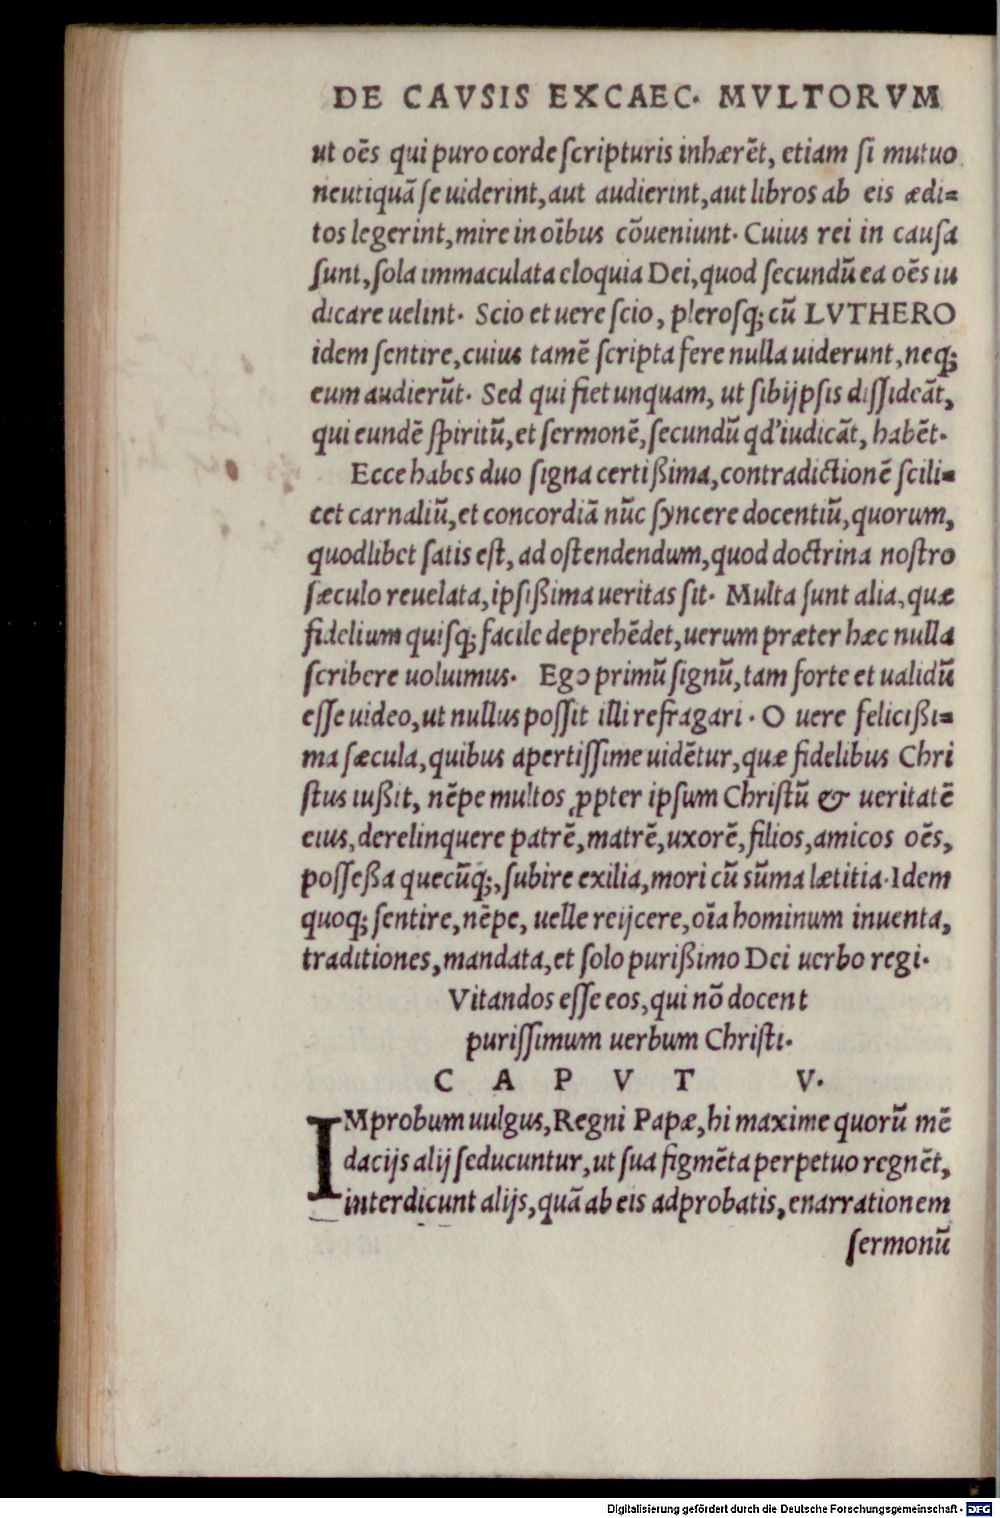 DE CAVSIS EXCAEC. MVLTORVM
ut oēs qui puro corde ſcripturis inhærēt, etiam ſi mutuo
neutiquā ſe uiderint, aut audierint, aut libros ab eis ædi=
tos legerint, mire in oībus cōueniunt. Cuius rei in cauſa
ſunt, ſola immaculata eloquia Dei, quod ſecundū ea oēs iu
dicare uelint. Scio et uere ſcio, pleroſq; cū LVTHERO
idem ſentire, cuius tamē ſcripta fere nulla uiderunt, neq;
eum audierūt. Sed qui fiet unquam, ut ſibijpſis diſſideāt,
qui eundē ſpiritū, et ſermonē, ſecundū qd' iudicāt, habēt.
Ecce habes duo ſigna certißima, contradictionē ſcili=
cet carnaliū, et concordiā nūc ſyncere docentiū, quorum,
quodlibet ſatis eſt, ad oſtendendum, quod doctrina noſtro
ſæculo reuelata, ipſißima ueritas ſit. Multa ſunt alia, quæ
fidelium quiſq; facile deprehēdet, uerum præter hæc nulla
ſcribere uoluimus. Ego primū ſignū, tam forte et ualidū
eſſe uideo, ut nullus poſſit illi refragari. O uere felicißi=
ma ſæcula, quibus apertiſſime uidētur, quæ fidelibus Chri
ſtus iußit, nēpe multos ꝓpter ipſum Chriſtū & ueritatē
eius, derelinquere patrē, matrē, uxorē, filios, amicos oēs,
poſſeßa quecūq;, ſubire exilia, mori cū sūma lætitia. Idem
quoq; ſentire, nēpe, uelle reijcere, oīa hominum inuenta,
traditiones, mandata, et ſolo purißimo Dei uerbo regi.
Vitandos eſſe eos, qui nō docent
puriſſimum uerbum Chriſti.
CAPVT V.
IMprobum uulgus, Regni Papæ, hi maxime quorū mē
dacijs alij ſeducuntur, ut ſua figmēta perpetuo regnēt,
interdicunt alijs, quā ab eis adprobatis, enarrationem
ſermonū
Digitalisierung gefördert durch die Deutsche Forschungsgemeinschaft - DFG